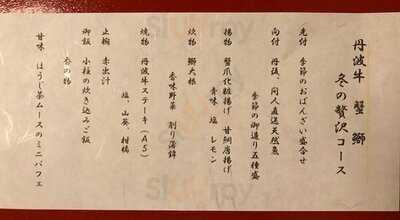 丹波牛 蟹 鰤
冬の贅沢コース
先付 季節のおばんざい盛合せ
向付 丹後、間人直送天然魚
季節の御造り五種盛
揚物 蟹爪化粧揚げ 甘鯛唐揚げ
青味 塩 レモン
炊物 鰤大根
香味野菜 削り蒲鉾
焼物 丹波牛ステーキ(A5)
塩、山葵、柑橘
止椀 赤出汁
御飯 小柱の炊き込みご飯
香の物
甘味 ほうじ茶ムースのミニパフェ